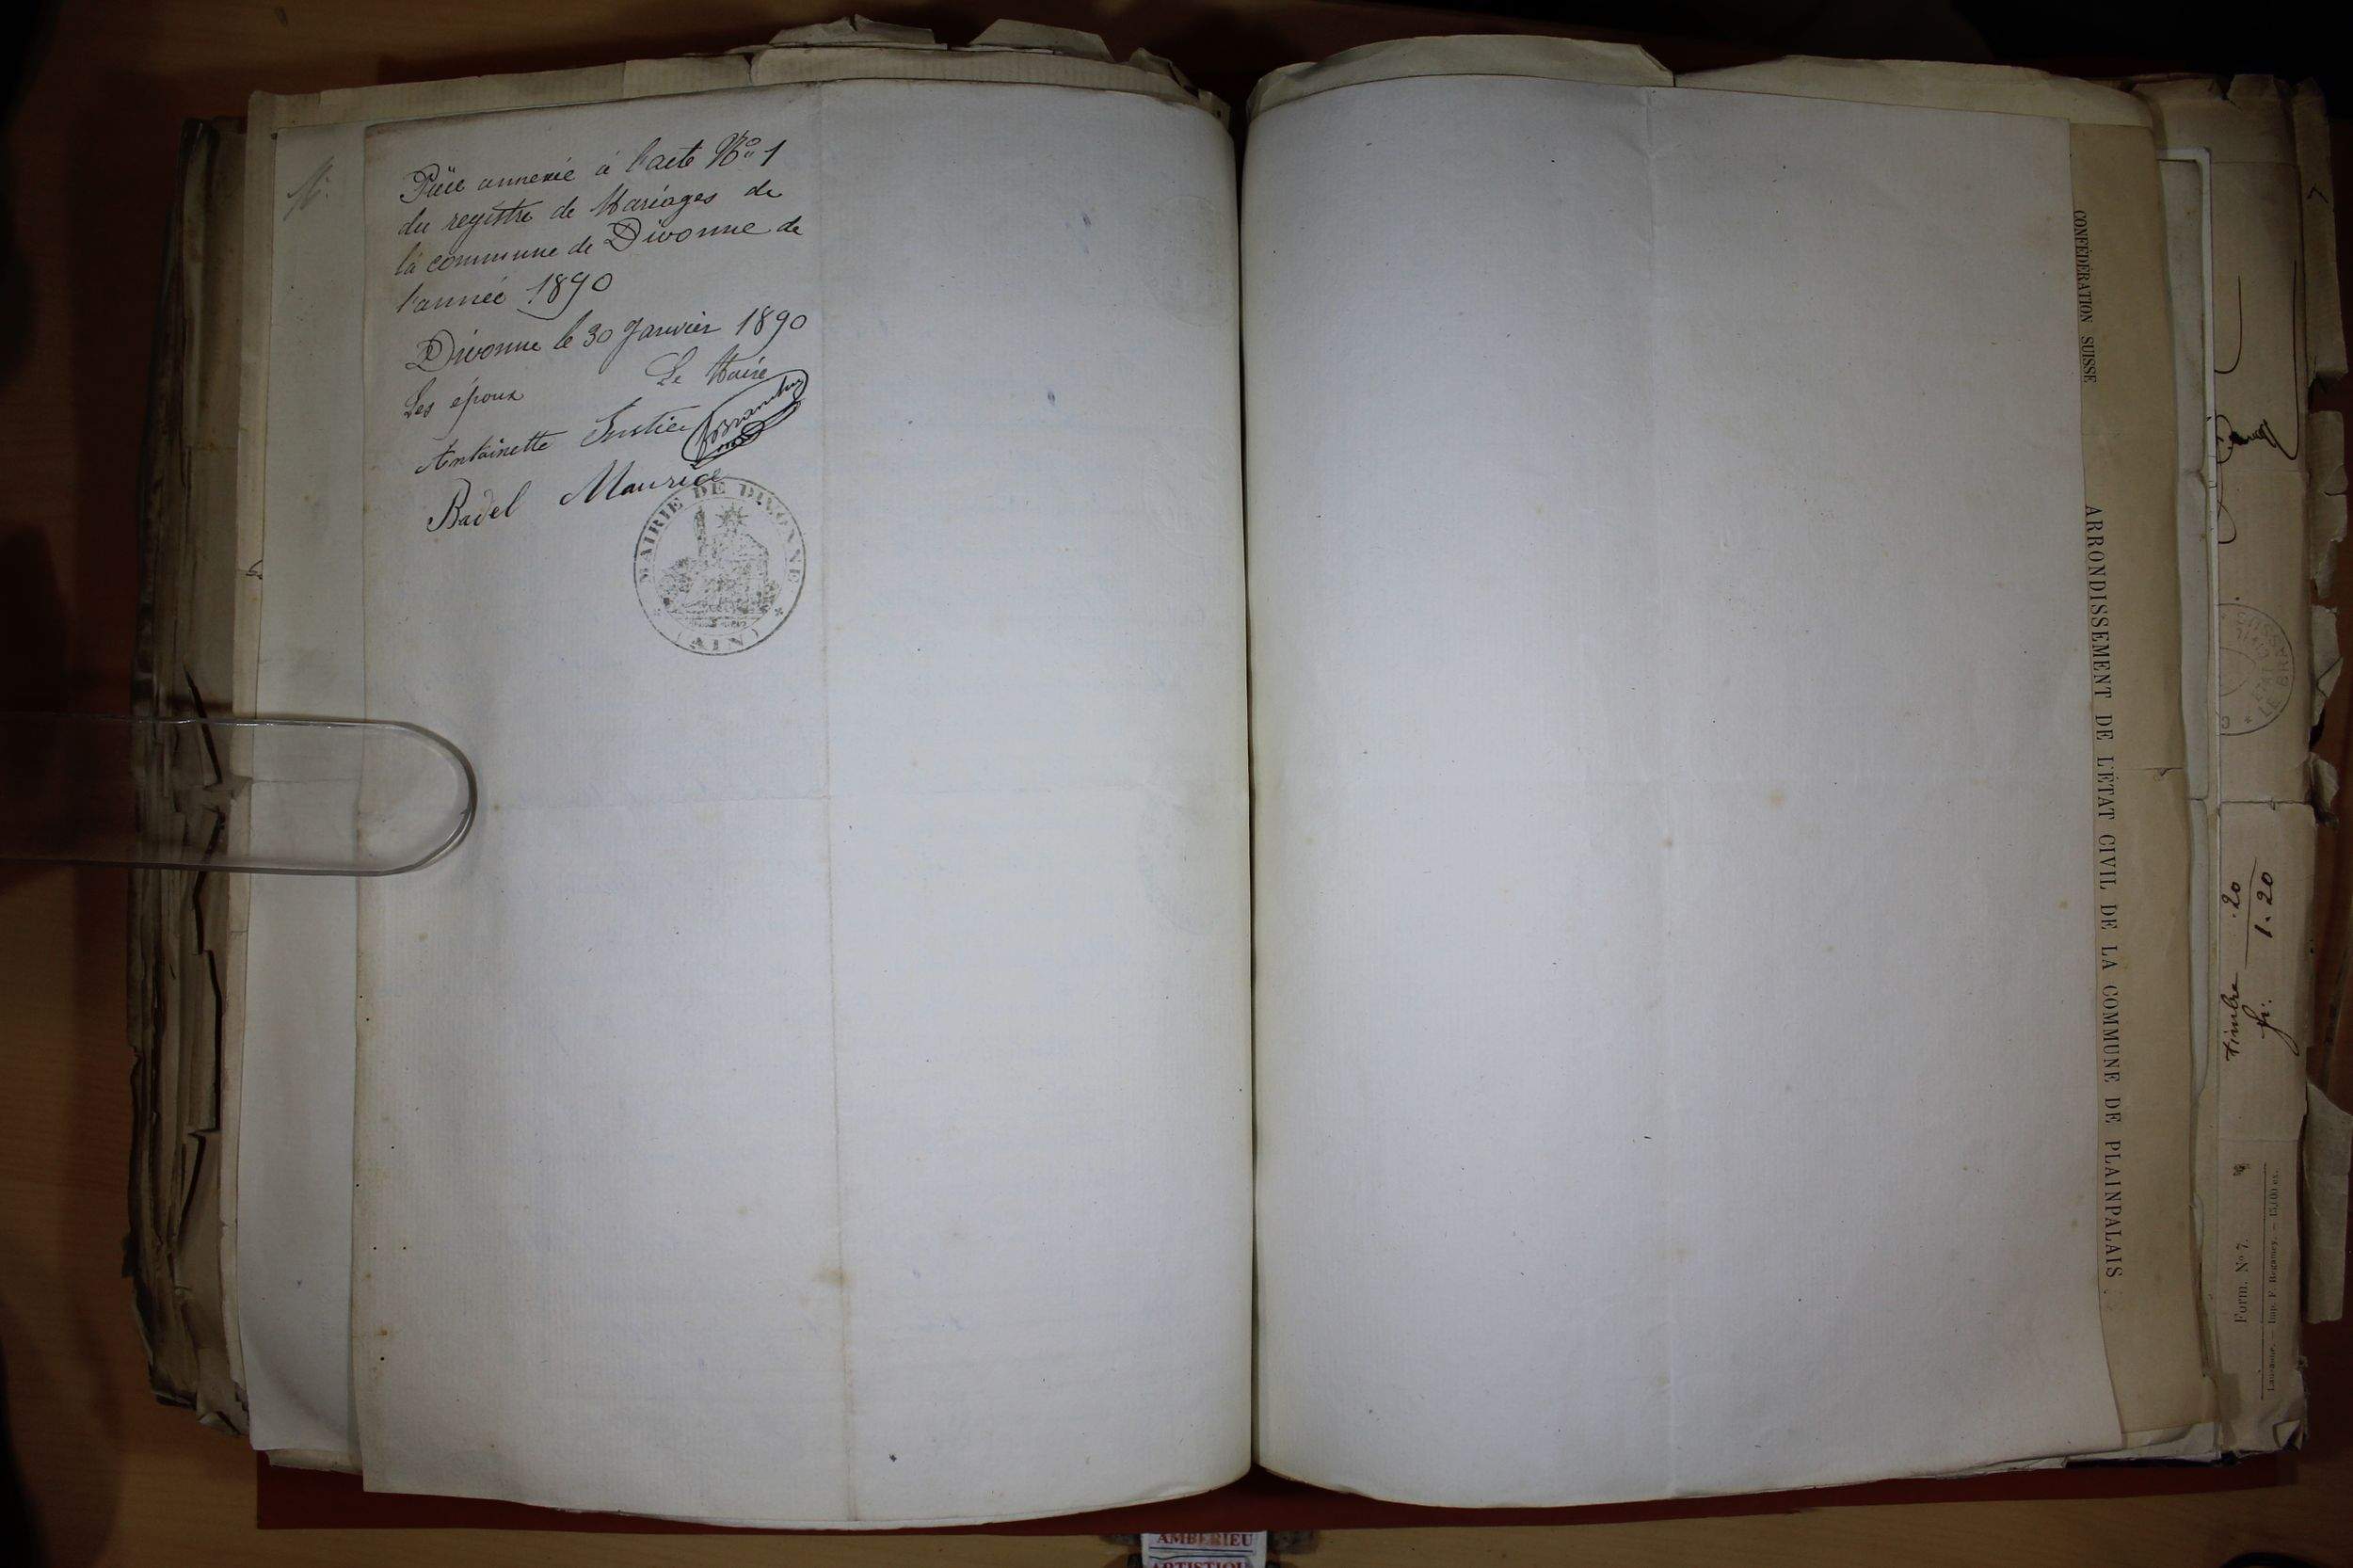 Pièce annexée à l'acte No 1
du registre de Mariages de
la commune de Divonne de
l'année 1890
Divonne le 30 Janvier 1890
Les époux Le Maire
Antoinette
Badel Maurice
MAIRIE DE DIVONNE
(AIN)
CONFÉDÉRATION SUISSE
ARRONDISSEMENT DE L'ÉTAT CIVIL DE LA COMMUNE DE PLAINPALAIS
timbre .20
fr. 1.20
Form. No 7.
AMBERIEU